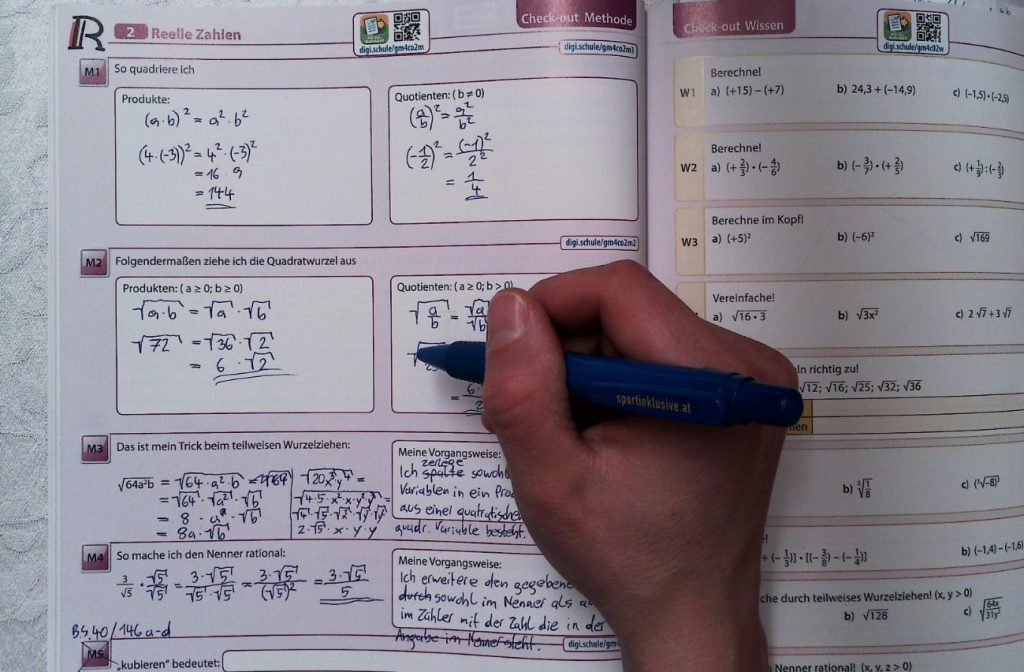 R 2 Reelle Zahlen
digi.schule/gm4co2m
Check-out Methode
digi.schule/gm4co2m1
M1 So quadriere ich
Produkte:
(a·b)² = a²·b²
(4·(-3))² = 4²·(-3)²
= 16 · 9
= 144
Quotienten: (b ≠ 0)
(a/b)² = a²/b²
(-1/2)² = (-1)²/2²
= 1/4
digi.schule/gm4co2m2
M2 Folgendermaßen ziehe ich die Quadratwurzel aus
Produkten: (a ≥ 0; b ≥ 0)
√a·b = √a · √b
√72 = √36 · √2
= 6 · √2
Quotienten: (a ≥ 0; b > 0)
√a/b = √a/√b
= 6
M3 Das ist mein Trick beim teilweisen Wurzelziehen:
√64a²b = √64·a²·b
= √64 · √a² · √b
= 8 · a · √b
= 8a·√b
√20x³y⁴ =
√4·5·x²·x·y²·y² =
2·√5·x·y·y
Meine Vorgangsweise:
zerlege
Ich spalte sowohl
Variablen in ein
aus einer quadratischen
quadr. Variable besteht.
M4 So mache ich den Nenner rational:
3/√5 · √5/√5 = 3·√5/√5·√5 = 3·√5/(√5)² = 3·√5/5
Meine Vorgangsweise:
Ich erweitere den
durch sowohl im Nenner als
im Zähler mit der Zahl die in der
Angabe im Nenner steht.
BS.40/146 a-d
M5 „kubieren“ bedeutet:
Check-out Wissen
digi.schule/gm4c02w
W1 Berechne!
a) (+15) – (+7) b) 24,3 + (–14,9) c) (–1,5) • (–2,5)
W2 Berechne!
a) (+2/3) • (–4/6) b) (–3/7) • (+2/5) c) (+1/9) : (–2/3)
W3 Berechne im Kopf!
a) (+5)² b) (–6)² c) √169
Vereinfache!
a) √16 • 3 b) √3x² c) 2√7 + 3√7
richtig zu!
√12; √16; √25; √32; √36
b) ³√1/8 c) (³√–8)³
+ (–1/3)] • [(–3/8) – (–1/4)] b) (–1,4) – (–1,6)
che durch teilweises Wurzelziehen! (x, y > 0)
b) √128 c) √64x/31y²
Nenner rational! (x, y, z > 0)
sportinklusive.at